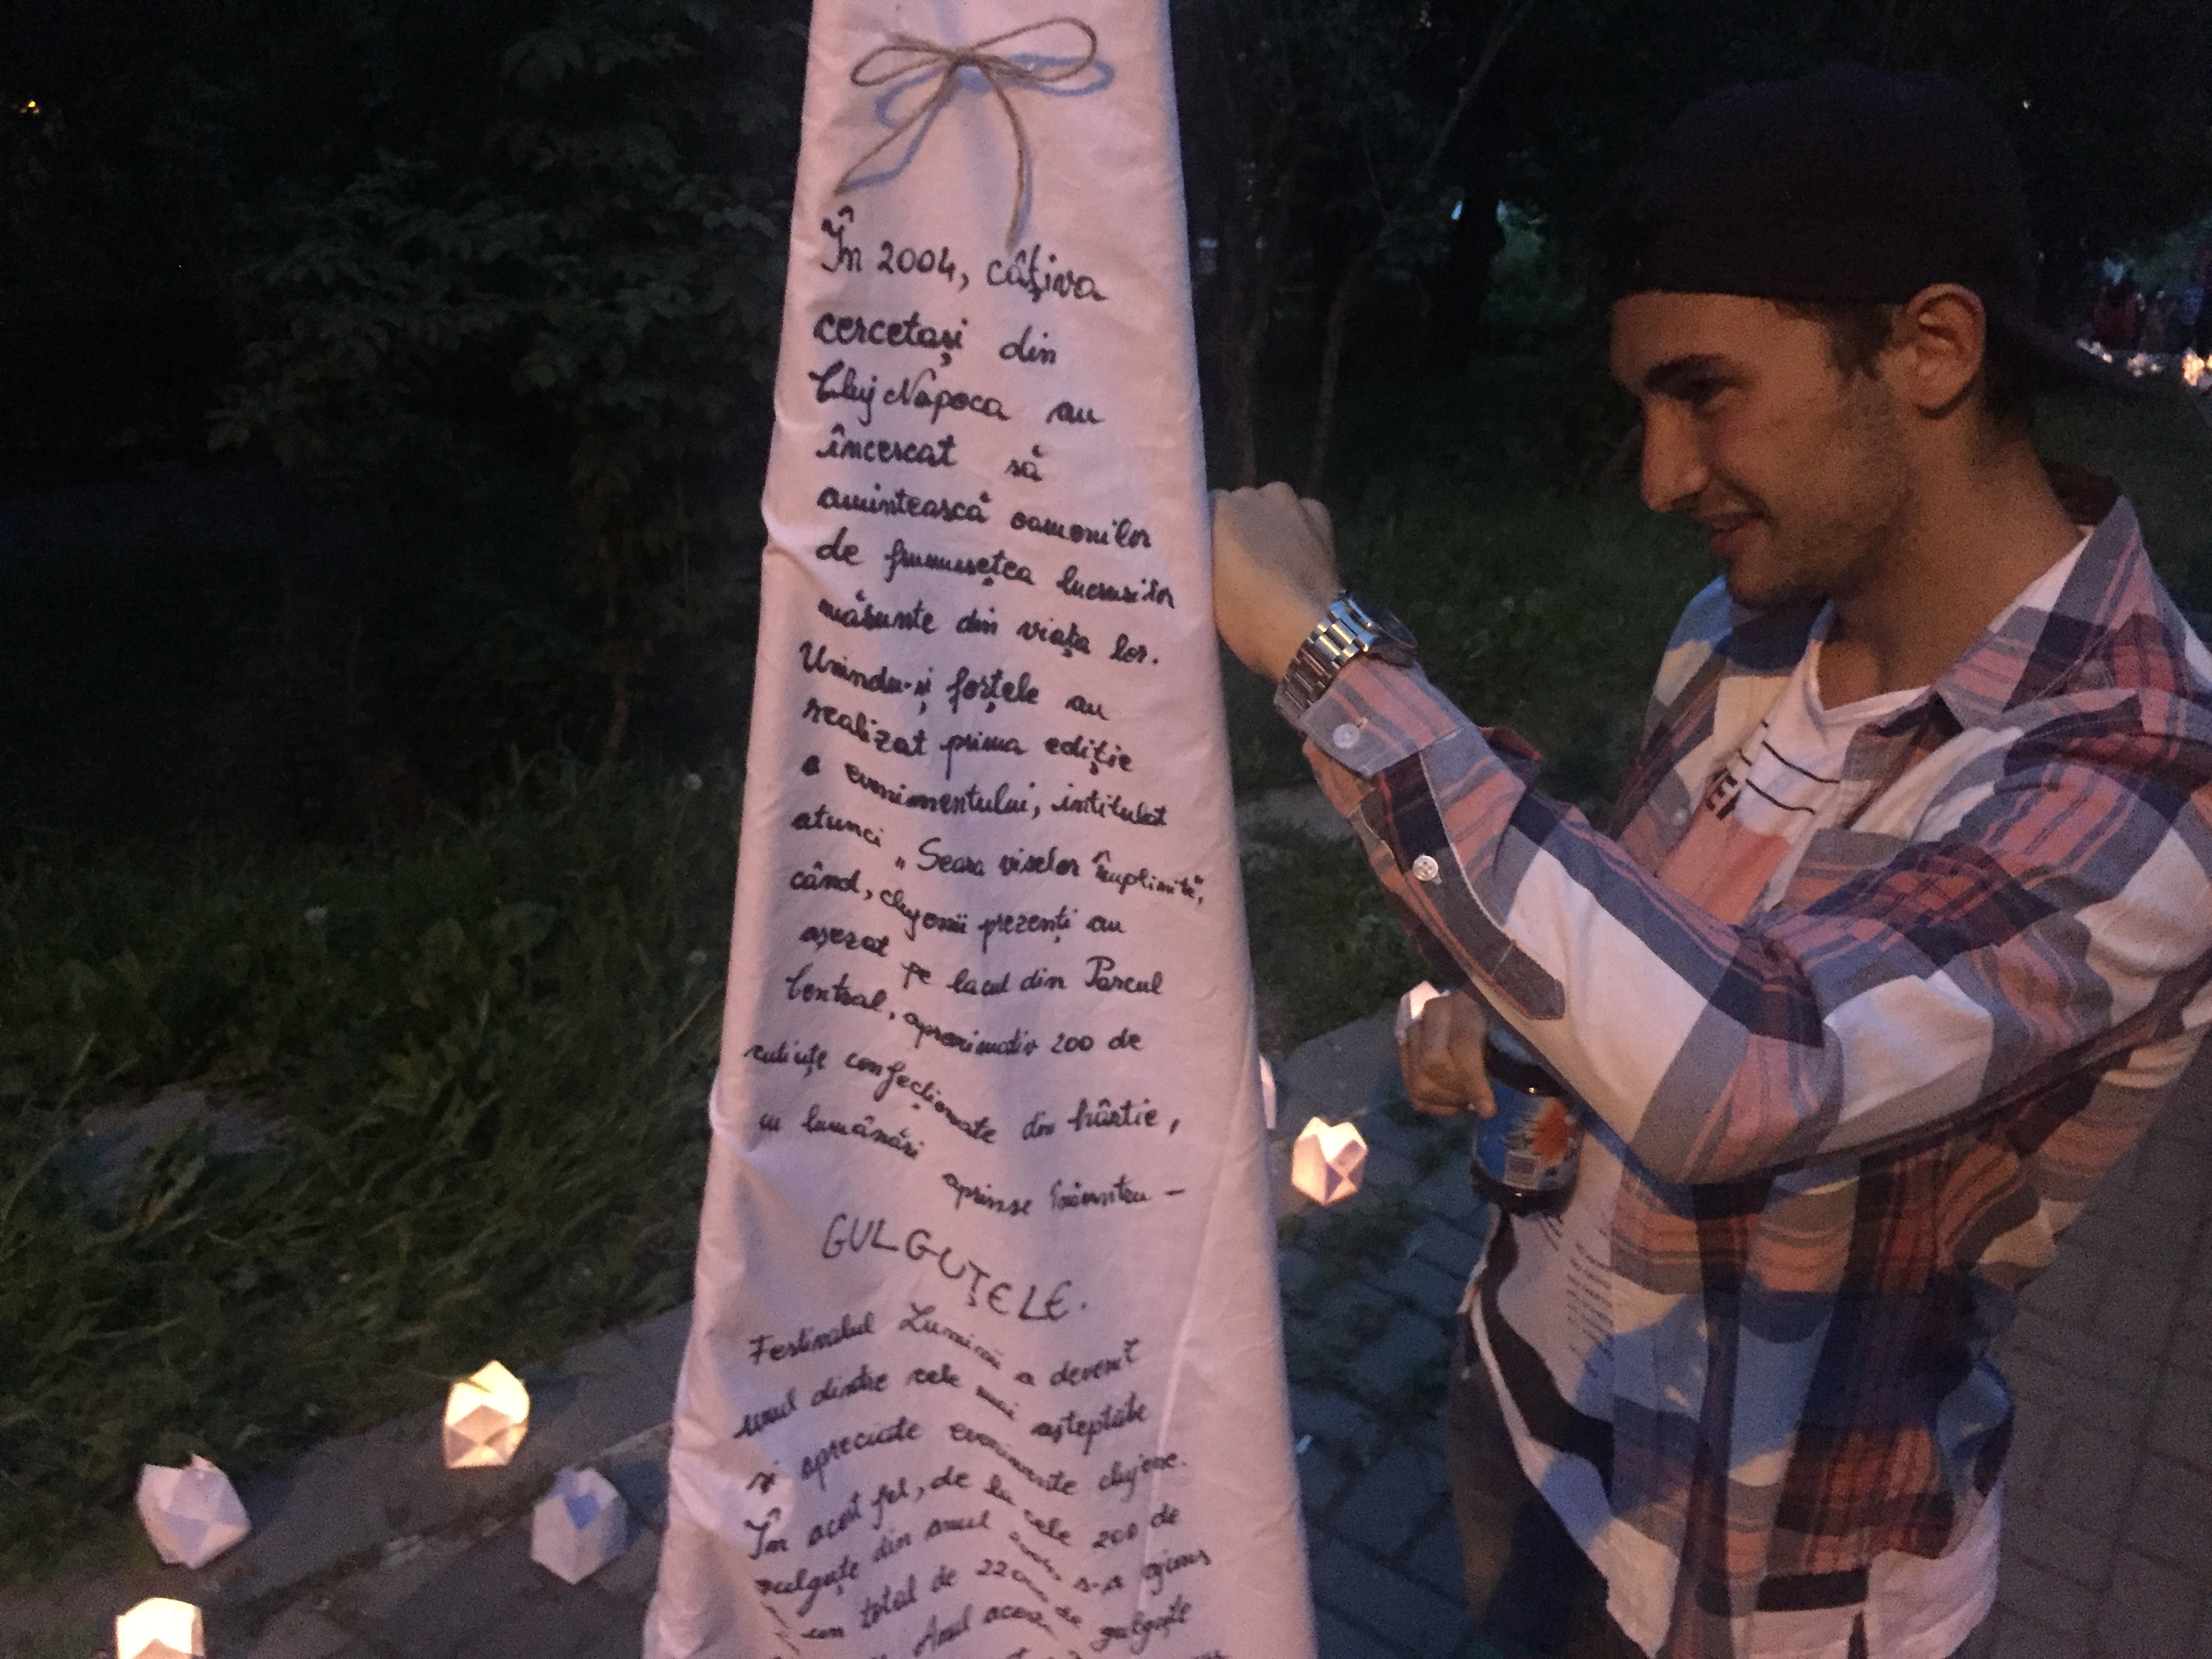 În 2004, câțiva
cercetași din
Cluj Napoca au
încercat să
amintească oamenilor
de frumusețea lucrurilor
mărunte din viața lor.
Unindu-și forțele au
realizat prima ediție
a evenimentului, intitulat
atunci „Seara viselor împlinite",
când, clujenii prezenți au
așezat pe lacul din Parcul
Central, aproximativ 200 de
cutiuțe confecționate din hârtie,
cu lumânări
aprinse înăuntru -
GULGUȚELE.
Festivalul Luminii a devenit
unul dintre cele mai așteptate
și apreciate evenimente clujene.
În acest fel, de la cele 200 de
gulguțe din anul s-a ajuns
un total de de gulguțe
Anul acesta